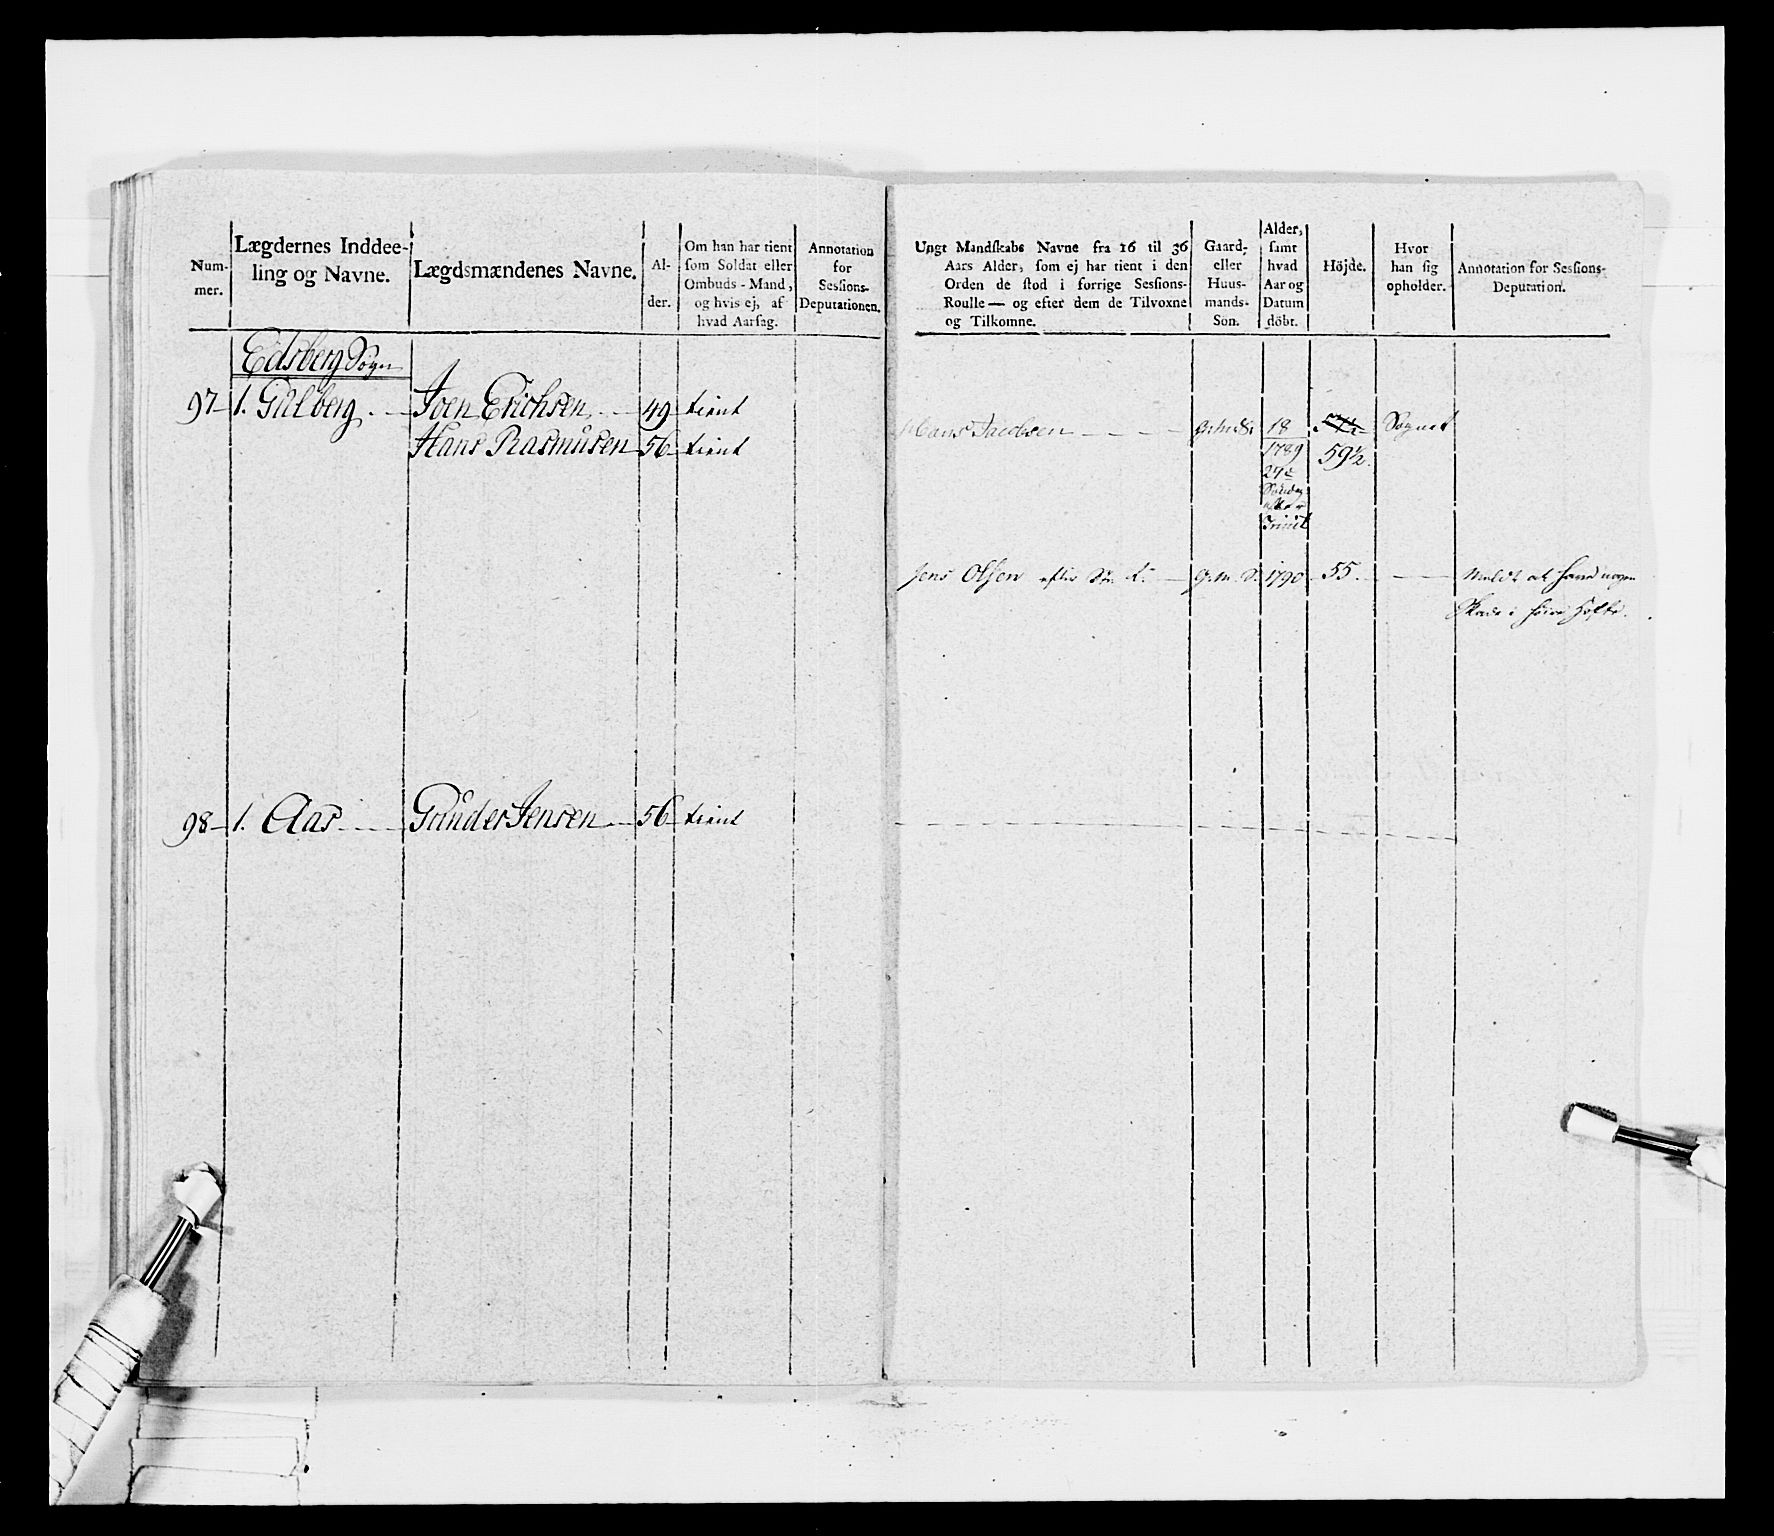 Num-
mer.
Lægdernes Inddee-
ling og Navne.
Lægdsmændenes Navne.
Al-
der.
Om han har tient
som Soldat eller
Ombuds-Mand,
og hvis ej, af
hvad Aarsag.
Annotation
for
Sessions-
Deputationen.
Edsberg Sogn
97 1. Gulberg Joen Erichsen 49 tient
Hans Rasmusen 56 tient
98 1. Aas Gunder Jensen 56 tient
Ungt Mandskabs Navne fra 16 til 36
Aars Alder, som ej har tient i den
Orden de stod i forrige Sessions-
Roulle — og efter dem de Tilvoxne
og Tilkomne.
Gaard-
eller
Huus-
mands-
Søn.
Alder,
samt
hvad
Aar og
Datum
döbt.
Höjde.
Hvor
han sig
opholder.
Annotation for Sessions-
Deputation.
Hans Jacobsen 18 57½ Sognet
1789 59½
27de
Søndag
efter
Trinit
Jens Olsen efter G. M. S. 1790 55 Meldt at have nogen
Skade i høire Hofte.